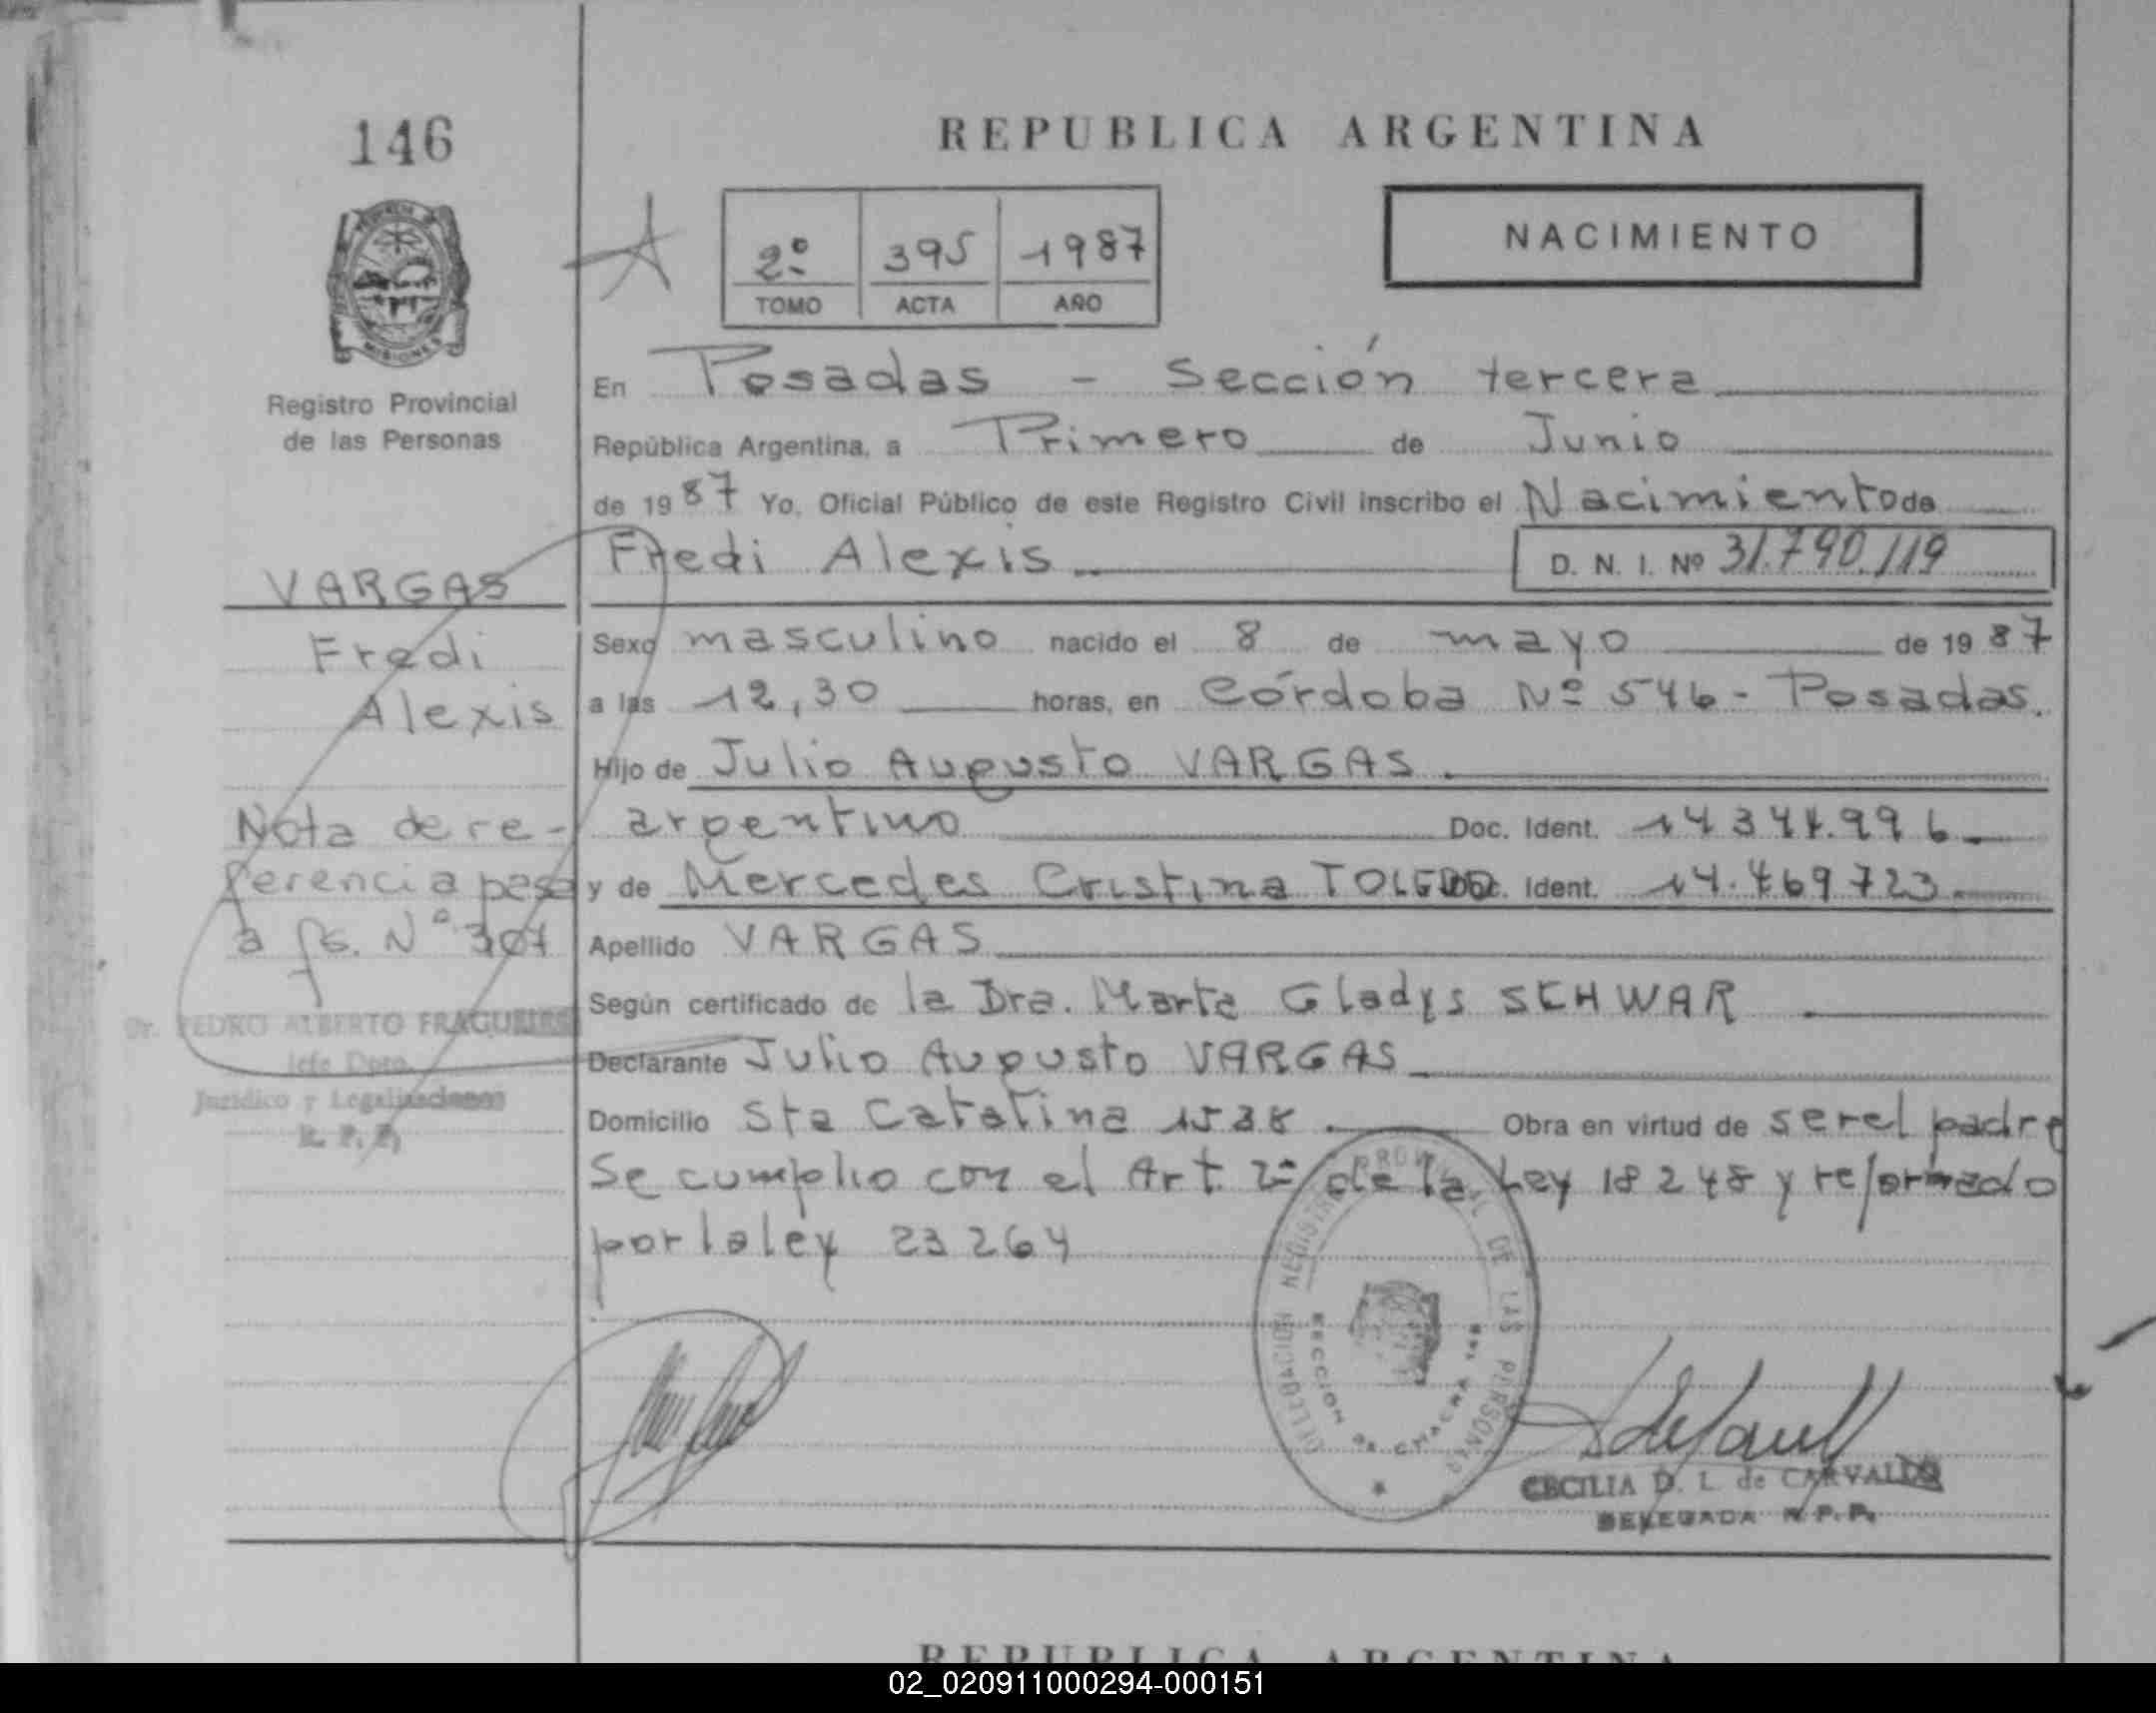 146
REPUBLICA ARGENTINA
NACIMIENTO
2º 395 1987
TOMO ACTA AÑO
MISIONES
Registro Provincial
de las Personas
En Posadas - Sección tercera
República Argentina, a Primero de Junio
de 1987 Yo, Oficial Público de este Registro Civil inscribo el Nacimiento de
Fredi Alexis
D. N. I. Nº 31.790.119
VARGAS
Fredi
Alexis
Sexo masculino nacido el 8 de mayo de 1987
a las 12,30 horas, en Córdoba Nº 546 - Posadas.
Hijo de Julio Augusto VARGAS.
argentino Doc. Ident. 14.344.996
y de Mercedes Cristina TOLEDO Doc. Ident. 14.469723
Nota de re-
ferencia pasa
a fs. Nº 307
Apellido VARGAS
Según certificado de la Dra. Marta Gladys SCHWAR
Dr. PEDRO ALBERTO FRAGUEIRO
Jefe Dpto.
Jurídico y Legalizaciones
R. P. P.
Declarante Julio Augusto VARGAS
Domicilio Sta Catalina 1538. Obra en virtud de ser el padre
Se cumplio con el Art 2º de la Ley 18248 y reformado
por la ley 23264
DELEGACION REGISTRO PROVINCIAL DE LAS PERSONAS
SECCION DE CHACRA
CECILIA D. L. de CARVALLO
DELEGADA R. P. P.
REPUBLICA ARGENTINA
02_020911000294-000151